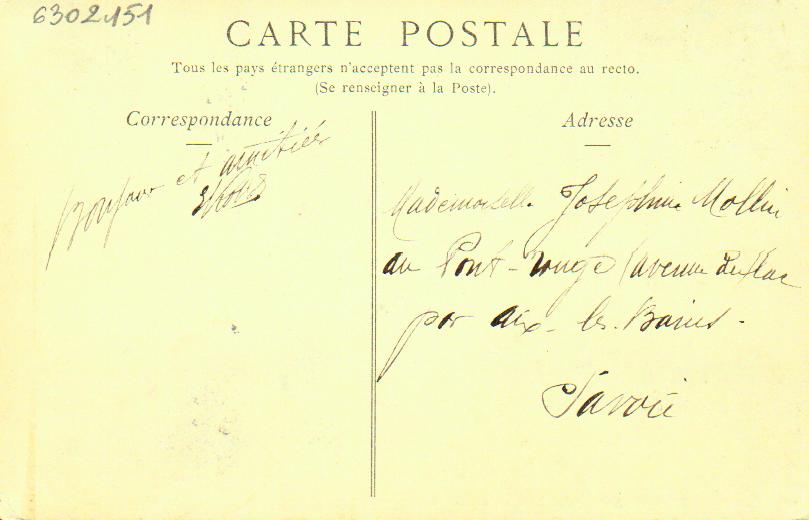 6302151
CARTE POSTALE
Tous les pays étrangers n'acceptent pas la correspondance au recto.
(Se renseigner à la Poste).
Correspondance
Bonjour et amitiés
Adresse
Mademoiselle Josephine Mollin
au Pont-rouge (avenue du Lac
par aix-les-Bains.
Savoie